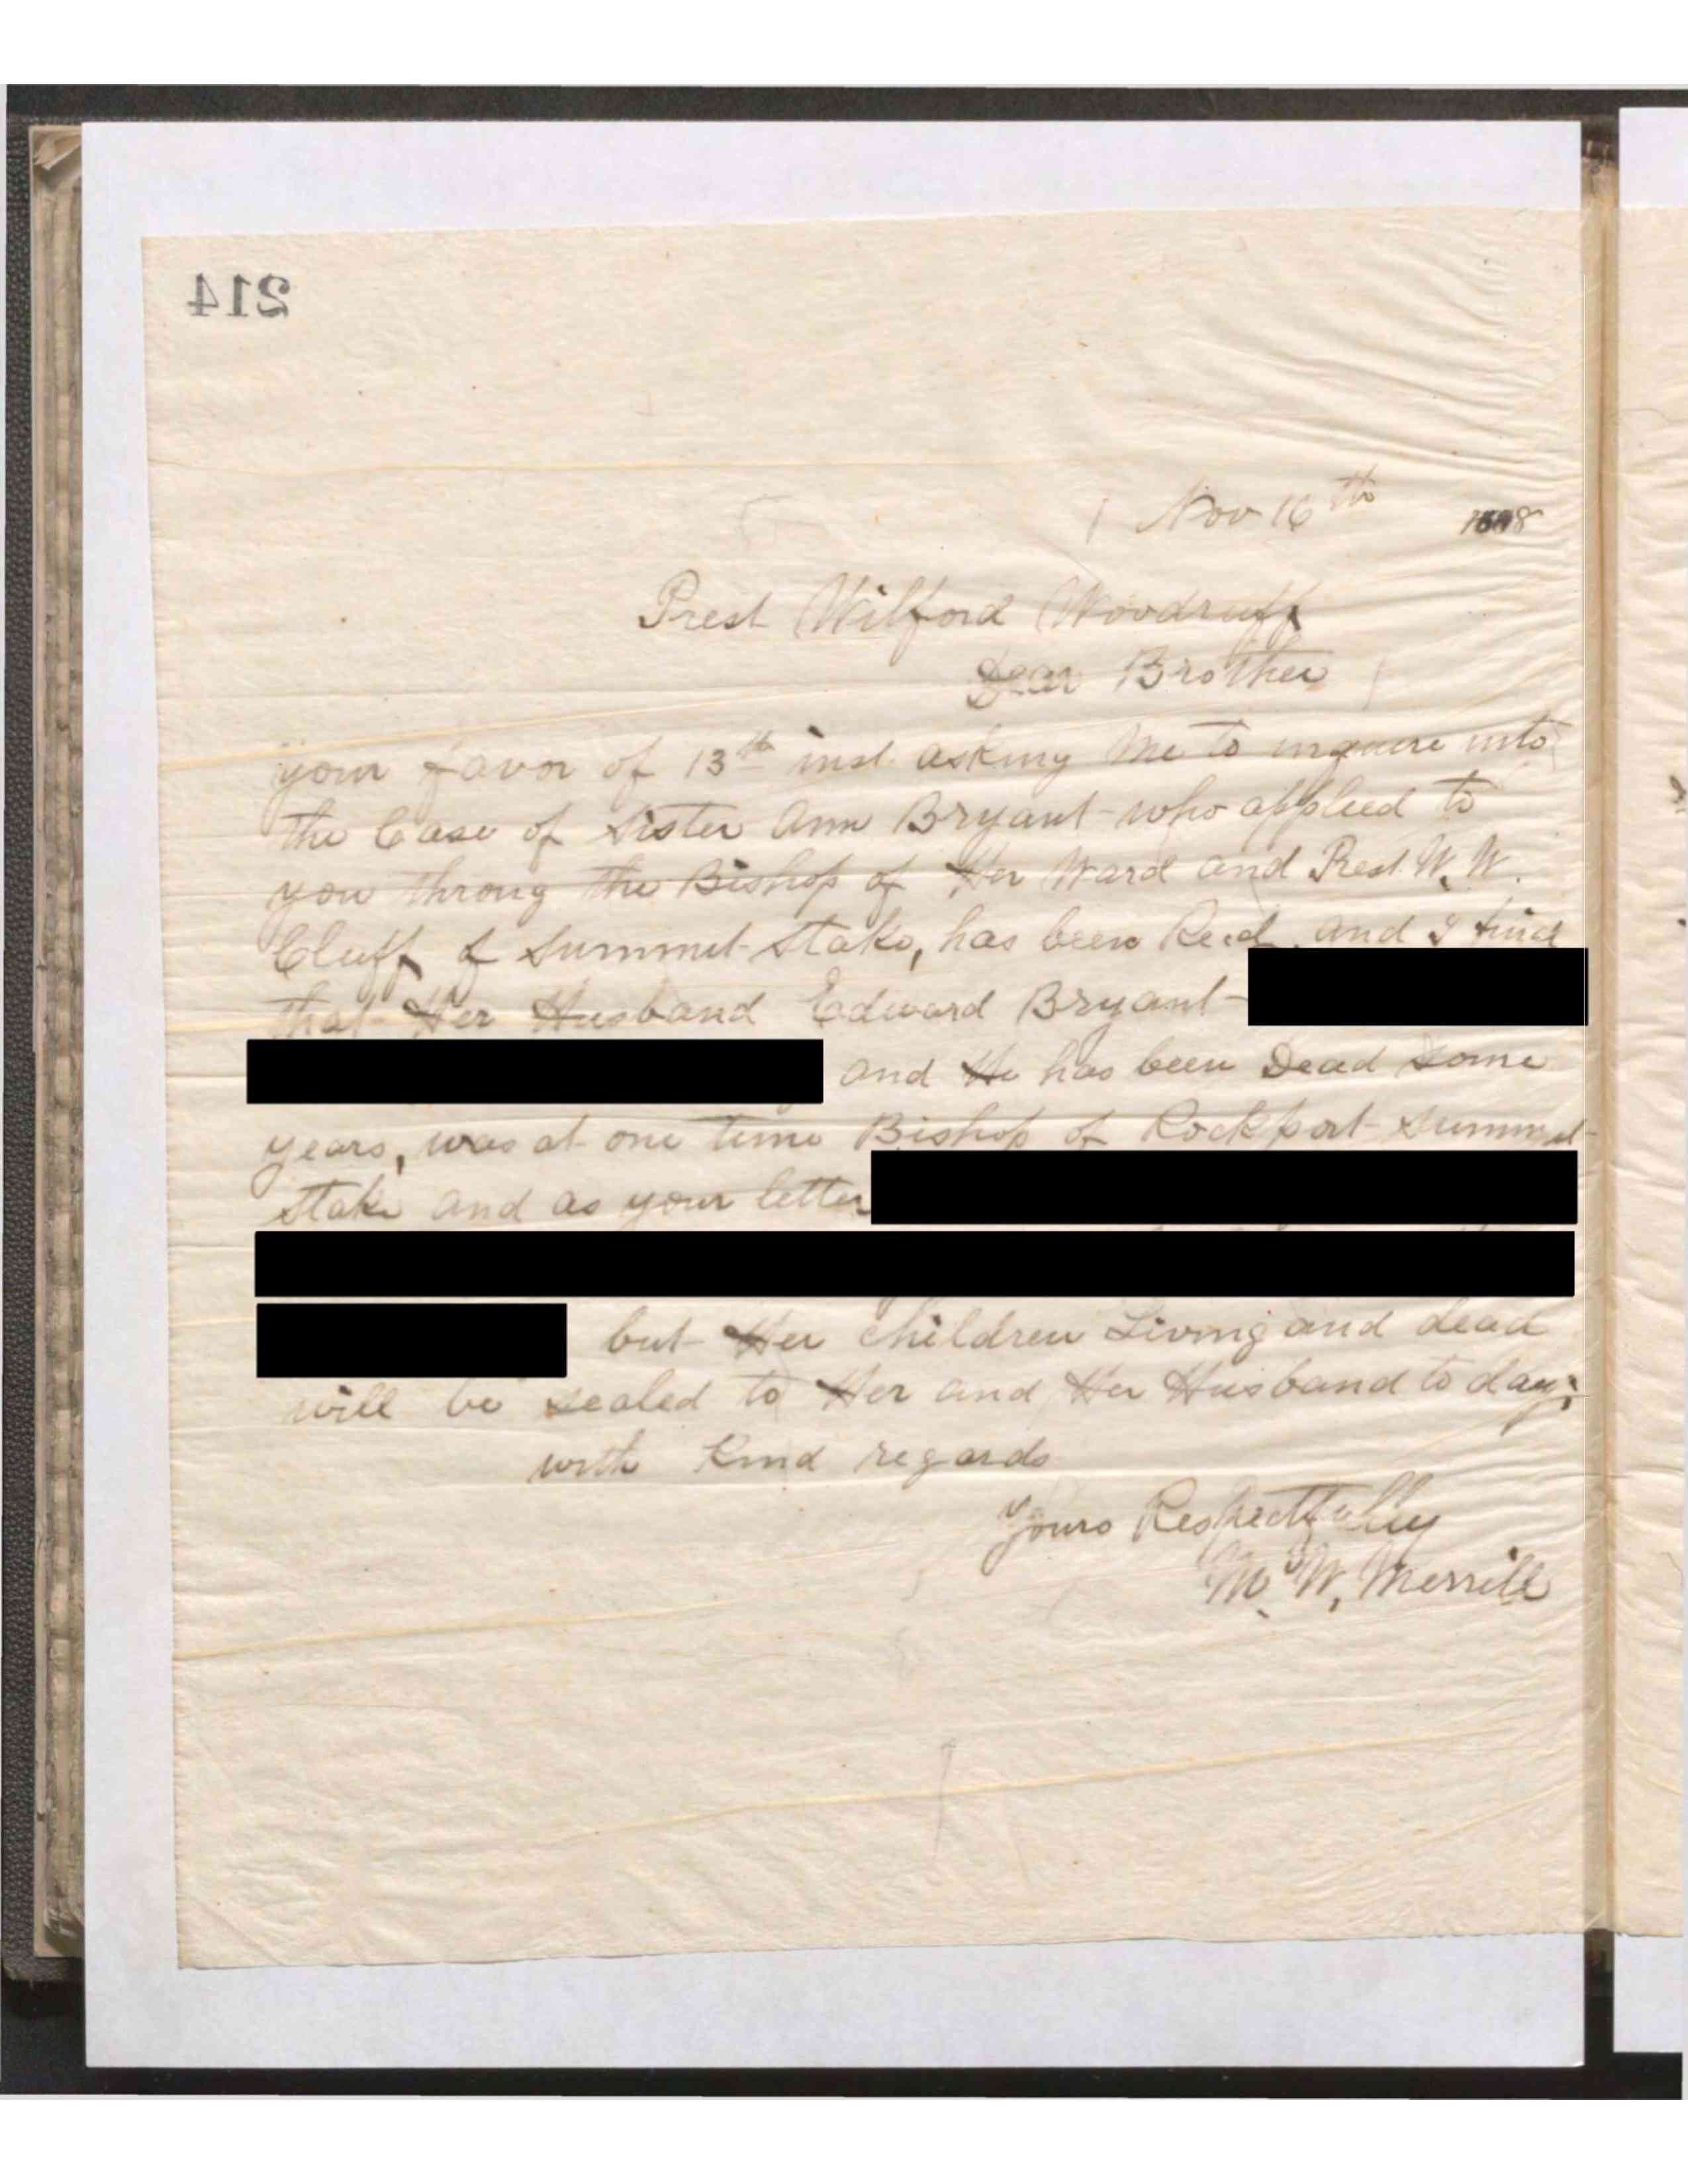 214
Nov 16th
Prest Wilford Woodruff
Dear Brother
your favor of 13th inst. asking Me to inquire into
the Case of Sister Ann Bryant who applied to
you throug the Bishop of Her Ward and Prest. W. W.
Cluff of Summit Stake, has been Recd, and I find
that Her Husband Edward Bryant
and He has been Dead some
years, was at one time Bishop of Rockport Summit
Stake and as your letter
but Her children Living and dead
will be sealed to Her and Her Husband to day;
with kind regards
Yours Respectfully
M. W. Merrill